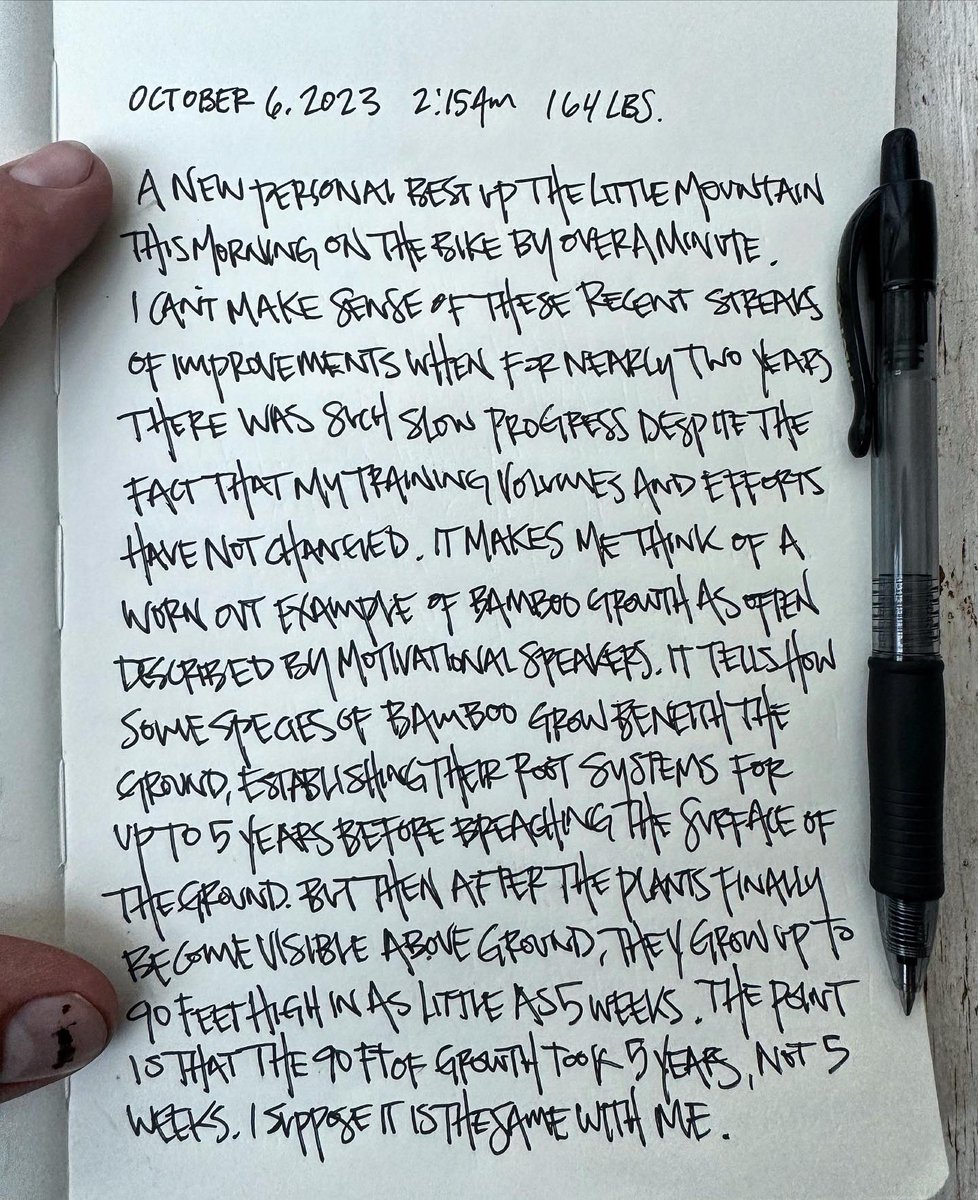 OCTOBER 6, 2023 2:15AM 164 LBS.
A NEW PERSONAL BEST UP THE LITTLE MOUNTAIN
THIS MORNING ON THE BIKE BY OVER A MINUTE.
I CAN'T MAKE SENSE OF THESE RECENT STREAKS
OF IMPROVEMENTS WHEN FOR NEARLY TWO YEARS
THERE WAS SUCH SLOW PROGRESS DESPITE THE
FACT THAT MY TRAINING VOLUMES AND EFFORTS
HAVE NOT CHANGED. IT MAKES ME THINK OF A
WORN OUT EXAMPLE OF BAMBOO GROWTH AS OFTEN
DESCRIBED BY MOTIVATIONAL SPEAKERS. IT TELLS HOW
SOME SPECIES OF BAMBOO GROW BENEITH THE
GROUND, ESTABLISHING THEIR ROOT SYSTEMS FOR
UP TO 5 YEARS BEFORE BREACHING THE SURFACE OF
THE GROUND. BUT THEN AFTER THE PLANTS FINALLY
BECOME VISIBLE ABOVE GROUND, THEY GROW UP TO
90 FEET HIGH IN AS LITTLE AS 5 WEEKS. THE POINT
IS THAT THE 90 FT OF GROWTH TOOK 5 YEARS, NOT 5
WEEKS. I SUPPOSE IT IS THE SAME WITH ME.